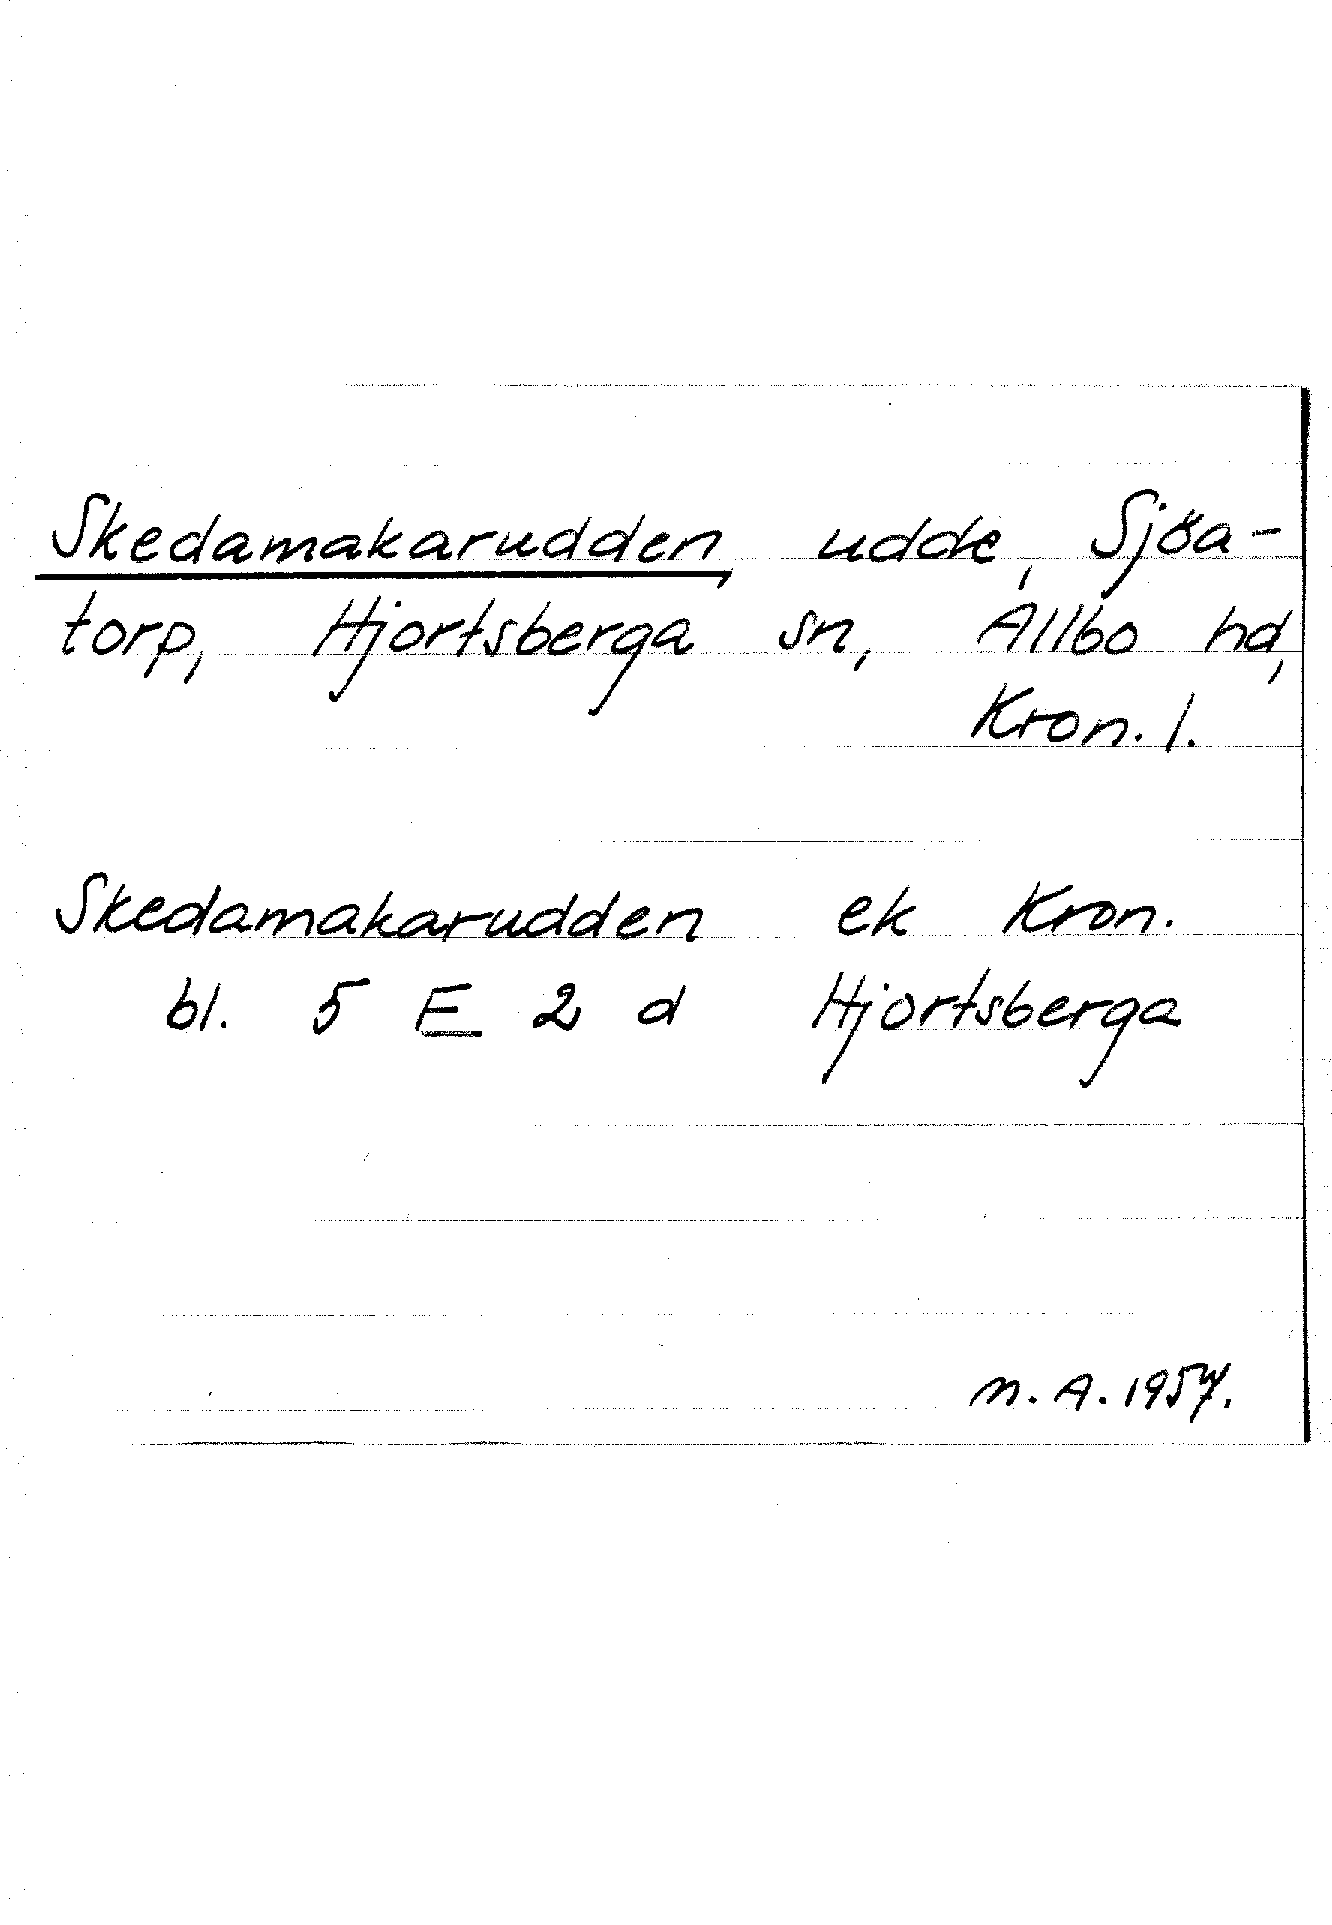 Skedamakarudden, udde, Sjöa-
torp, Hjortsberga sn, Allbo hd,
Kron. l.
Skedamakarudden ek Kron.
bl. 5 E 2 d Hjortsberga
n. A. 1957.